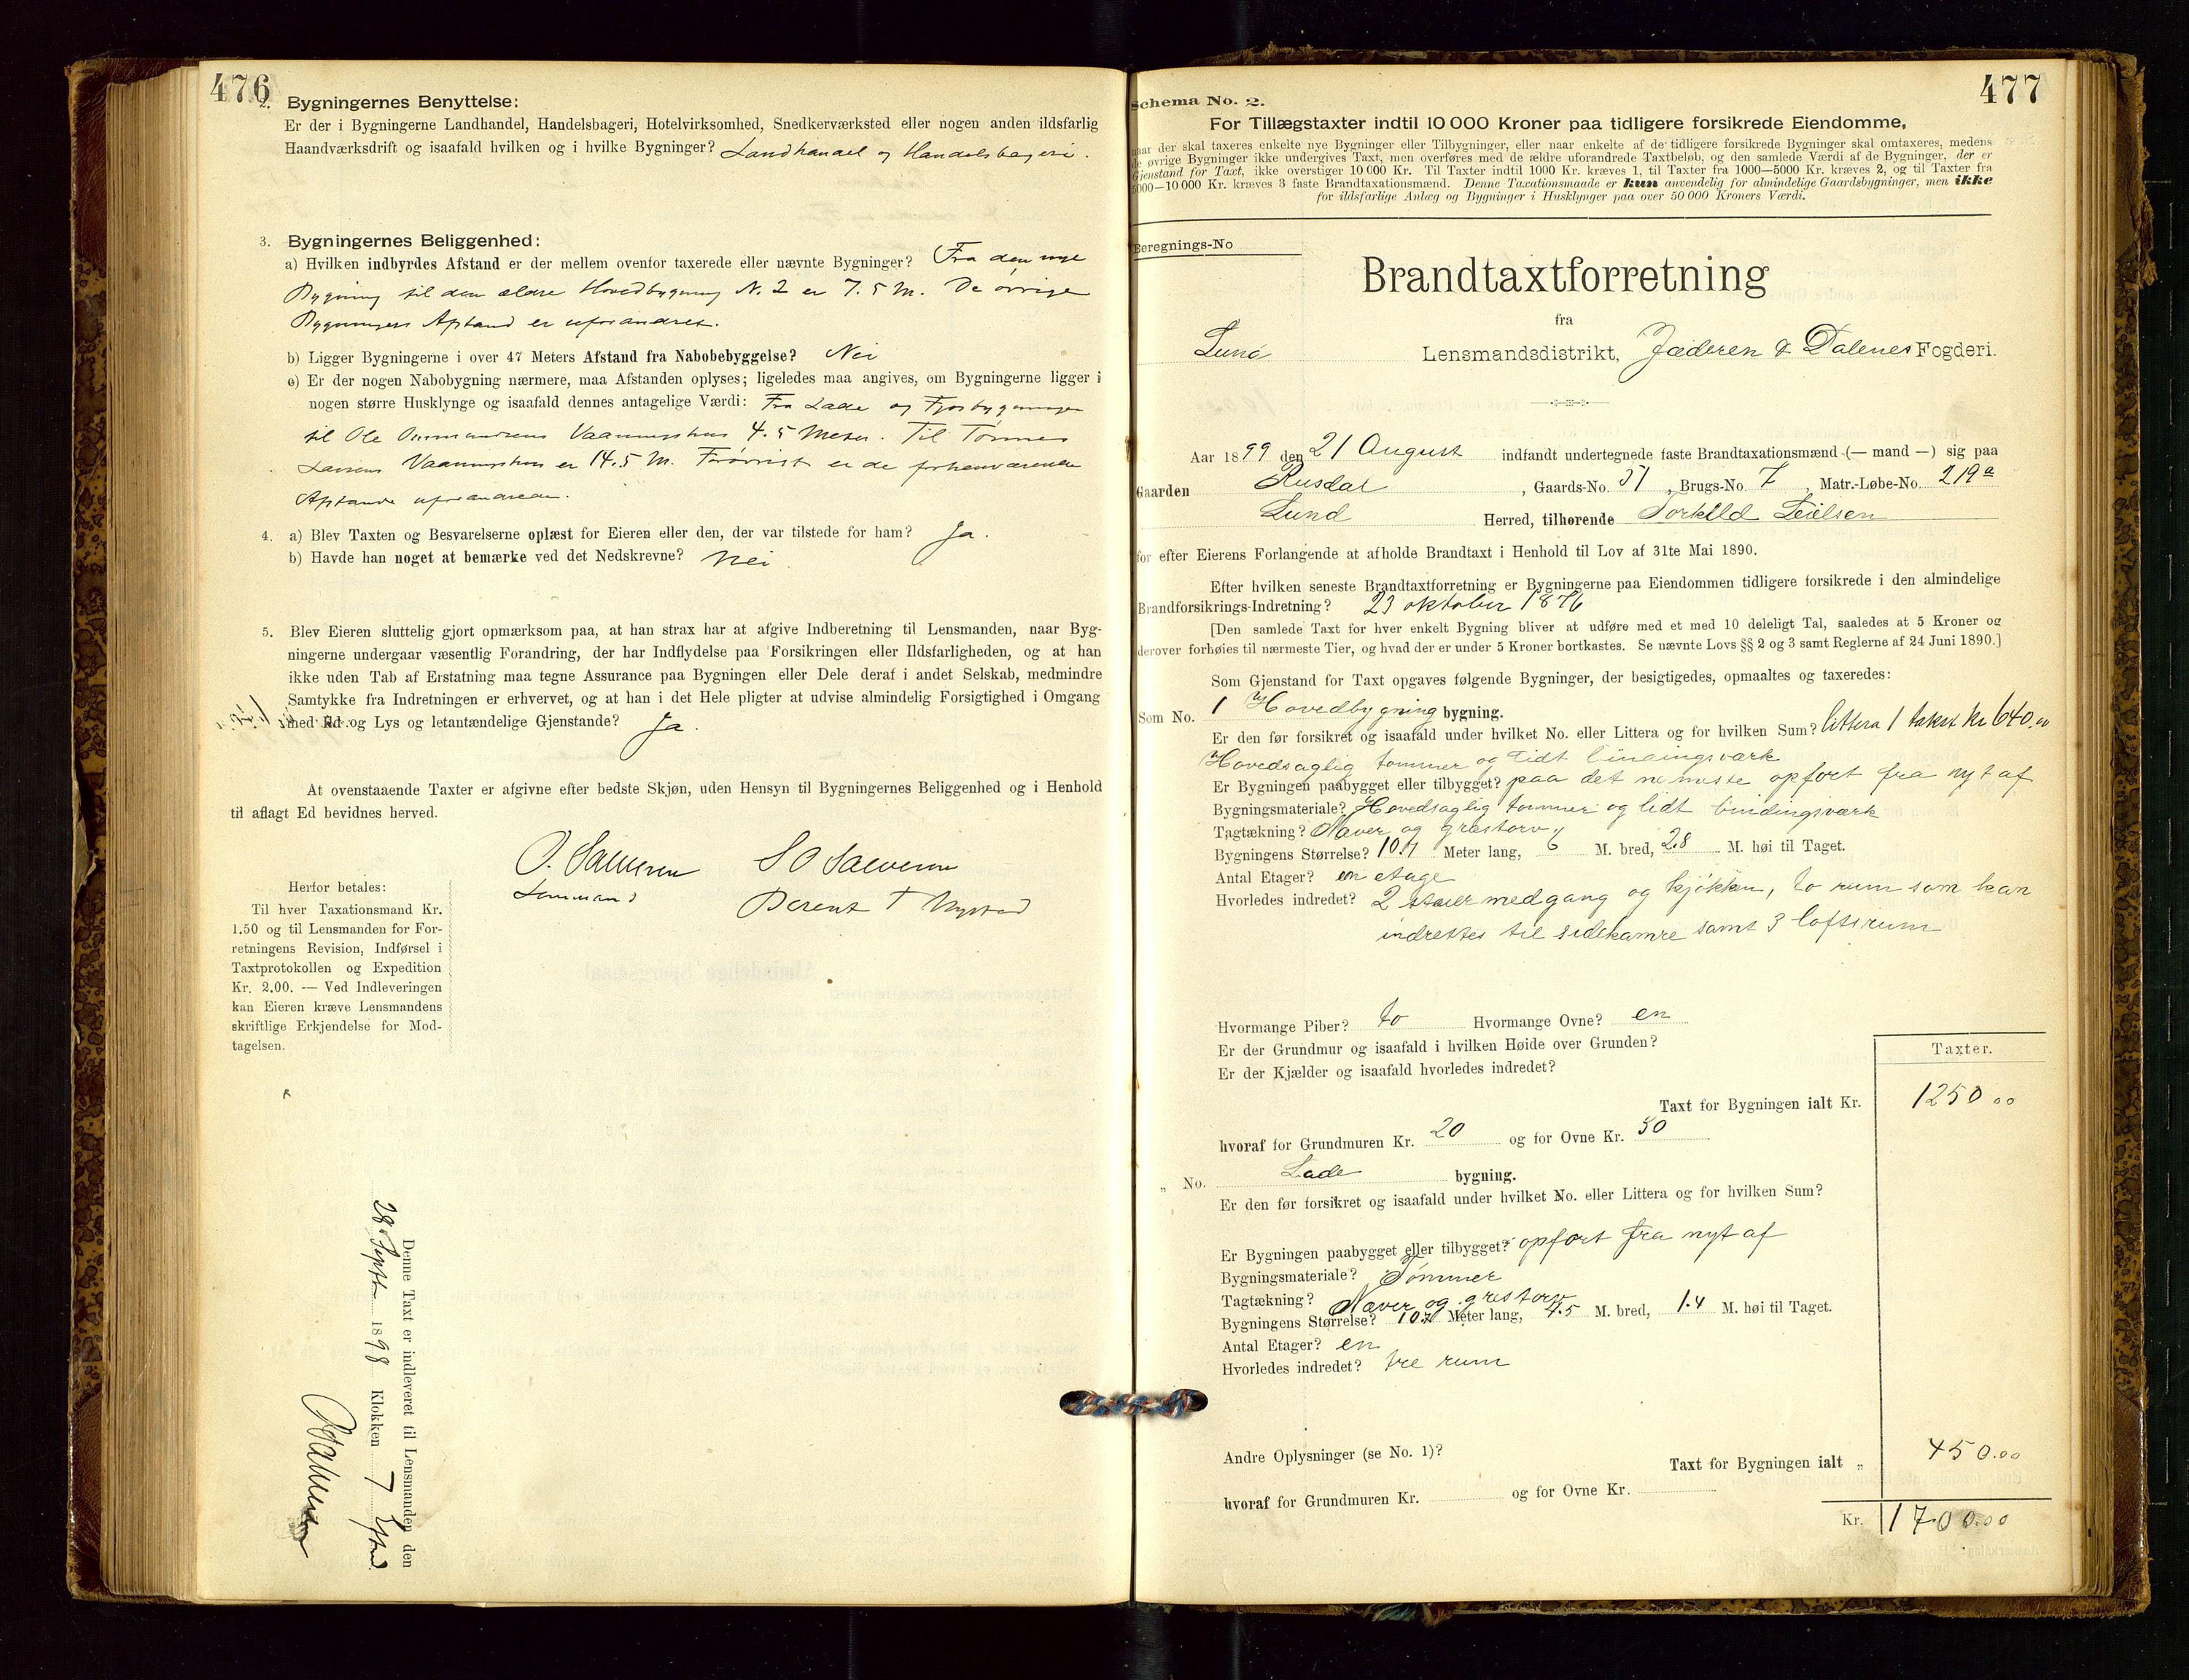 476
2. Bygningernes Benyttelse:
Er der i Bygningerne Landhandel, Handelsbageri, Hotelvirksomhed, Snedkerværksted eller nogen anden ildsfarlig
Haandværksdrift og isaafald hvilken og i hvilke Bygninger? Landhandel og Handelsbageri.
3. Bygningernes Beliggenhed:
a) Hvilken indbyrdes Afstand er der mellem ovenfor taxerede eller nævnte Bygninger? Fra den nye
Bygning til den ældre Hovedbygning N. 2 er 7.5 M. De øvrige
Bygningers Afstand er uforandret.
b) Ligger Bygningerne i over 47 Meters Afstand fra Nabobebyggelse? Nei
c) Er der nogen Nabobygning nærmere, maa Afstanden oplyses; ligeledes maa angives, om Bygningerne ligger i
nogen større Husklynge og isaafald dennes antagelige Værdi: Fra Lade og Fjøsbygningen
til Ole Vaaningshus 4.5 Meter. Til Tønnes
Larsens Vaaningshus er 14.5 M. Forøvrigt er de forhenværende
Afstande uforandrede.
4. a) Blev Taxten og Besvarelserne oplæst for Eieren eller den, der var tilstede for ham? Ja.
b) Havde han noget at bemærke ved det Nedskrevne? Nei
5. Blev Eieren sluttelig gjort opmærksom paa, at han strax har at afgive Indberetning til Lensmanden, naar Byg-
ningerne undergaar væsentlig Forandring, der har Indflydelse paa Forsikringen eller Ildsfarligheden, og at han
ikke uden Tab af Erstatning maa tegne Assurance paa Bygningen eller Dele deraf i andet Selskab, medmindre
Samtykke fra Indretningen er erhvervet, og at han i det Hele pligter at udvise almindelig Forsigtighed i Omgang
med Ild og Lys og letantændelige Gjenstande? Ja.
At ovenstaaende Taxter er afgivne efter bedste Skjøn, uden Hensyn til Bygningernes Beliggenhed og i Henhold
til aflagt Ed bevidnes herved.
O. Salvesen S O Salvesen
Lensmand Berent T Nystad
Herfor betales:
Til hver Taxationsmand Kr.
1.50 og til Lensmanden for For-
retningens Revision, Indførsel i
Taxtprotokollen og Expedition
Kr. 2.00. — Ved Indleveringen
kan Eieren kræve Lensmandens
skriftlige Erkjendelse for Mod-
tagelsen.
Denne Taxt er indleveret til Lensmanden den
28 Septbr 1898 Klokken 7 Efted.
Salvesen
477
Schema No. 2.
For Tillægstaxter indtil 10 000 Kroner paa tidligere forsikrede Eiendomme,
naar der skal taxeres enkelte nye Bygninger eller Tilbygninger, eller naar enkelte af de tidligere forsikrede Bygninger skal omtaxeres, medens
de øvrige Bygninger ikke undergives Taxt, men overføres med de ældre uforandrede Taxtbeløb, og den samlede Værdi af de Bygninger, der er
Gjenstand for Taxt, ikke overstiger 10 000 Kr. Til Taxter indtil 1000 Kr. kræves 1, til Taxter fra 1000—5000 Kr. kræves 2, og til Taxter fra
5000—10 000 Kr. kræves 3 faste Brandtaxationsmænd. Denne Taxationsmaade er kun anvendelig for almindelige Gaardsbygninger, men ikke
for ildsfarlige Anlæg og Bygninger i Husklynger paa over 50 000 Kroners Værdi.
Beregnings-No
Brandtaxtforretning
fra
Lund Lensmandsdistrikt, Jæderen & Dalenes Fogderi.
Aar 1899 den 21 August indfandt undertegnede faste Brandtaxationsmænd (— mand —) sig paa
Gaarden Rusdal, Gaards-No. 51, Brugs-No. 7, Matr.-Løbe-No. 219a
Lund Herred, tilhørende Torkild Leielsen
for efter Eierens Forlangende at afholde Brandtaxt i Henhold til Lov af 31te Mai 1890.
Efter hvilken seneste Brandtaxtforretning er Bygningerne paa Eiendommen tidligere forsikrede i den almindelige
Brandforsikrings-Indretning? 23 oktober 1876
[Den samlede Taxt for hver enkelt Bygning bliver at udføre med et med 10 deleligt Tal, saaledes at 5 Kroner og
derover forhøies til nærmeste Tier, og hvad der er under 5 Kroner bortkastes. Se nævnte Lovs §§ 2 og 3 samt Reglerne af 24 Juni 1890.]
Som Gjenstand for Taxt opgaves følgende Bygninger, der besigtigedes, opmaaltes og taxeredes:
Som No. 1 Hovedbygning bygning.
Er den før forsikret og isaafald under hvilket No. eller Littera og for hvilken Sum? littera 1 takst kr 640.00
Hovedsaglig tømmer og lidt bindingsværk
Er Bygningen paabygget eller tilbygget? paa det nærmeste opført fra nyt af
Bygningsmateriale? Hovedsaglig tømmer og lidt bindingsværk
Tagtækning? Næver og græstorv
Bygningens Størrelse? 10.7 Meter lang, 6 M. bred, 2.8 M. høi til Taget.
Antal Etager? en etage
Hvorledes indredet? 2 stuer med gang og kjøkken, to rum som kan
indrettes til sidekamre samt 3 loftsrum
Hvormange Piber? to Hvormange Ovne? en
Er der Grundmur og isaafald i hvilken Høide over Grunden?
Er der Kjælder og isaafald hvorledes indredet?
Taxter.
Taxt for Bygningen ialt Kr. 1250 00
hvoraf for Grundmuren Kr. 20 og for Ovne Kr. 50
„ No. Lade bygning.
Er den før forsikret og isaafald under hvilket No. eller Littera og for hvilken Sum?
Er Bygningen paabygget eller tilbygget? opført fra nyt af
Bygningsmateriale? Tømmer
Tagtækning? Næver og græstorv
Bygningens Størrelse? 10.7 Meter lang, 7.5 M. bred, 1.4 M. høi til Taget.
Antal Etager? en
Hvorledes indredet? tre rum
Andre Oplysninger (se No. 1)?
Taxt for Bygningen ialt „ 450.00
hvoraf for Grundmuren Kr. og for Ovne Kr.
Kr. 1700.00